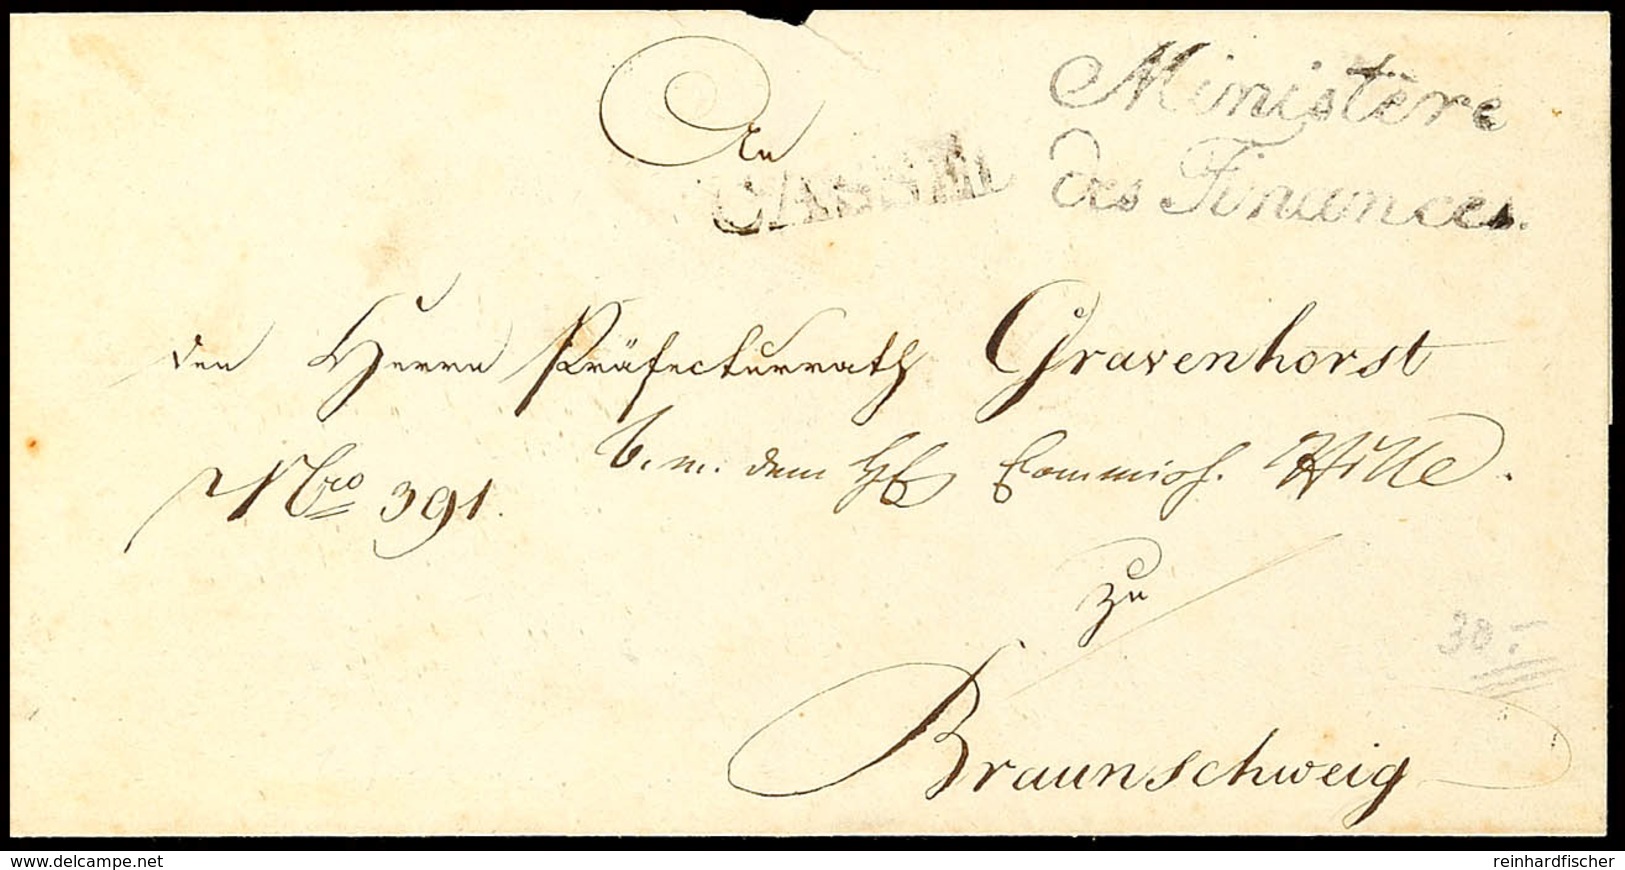 An
Ministère
des Finances.
CASSEL
den Herrn Präfecturrath Gravenhorst
b. m. dem H Commiss. Wille.
Nro 391.
zu
Braunschweig
30.-
www.delcampe.net
reinhardfischer